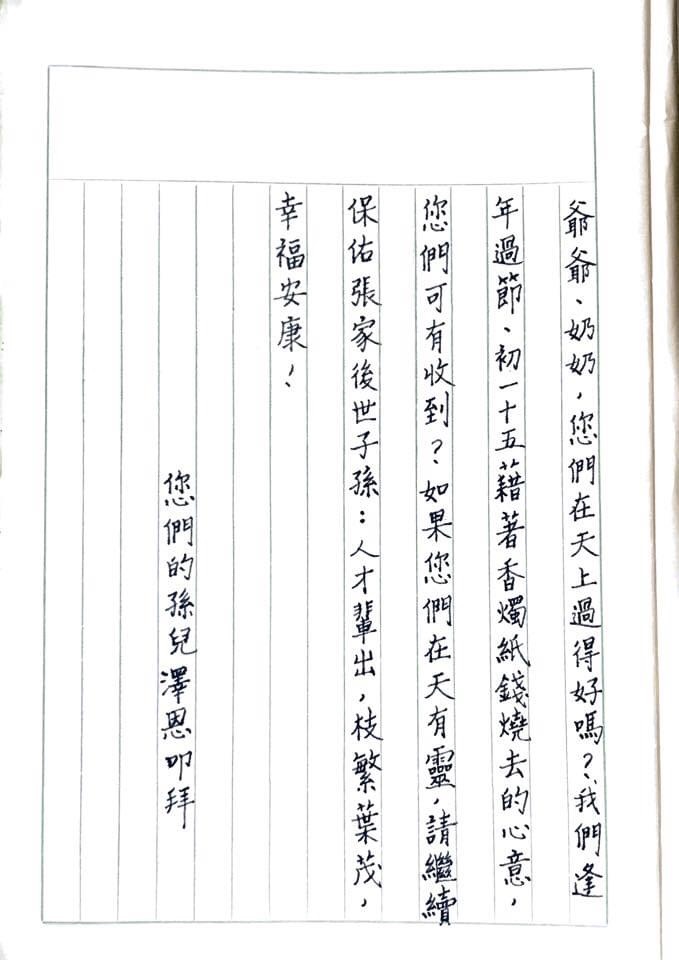 爺爺、奶奶，您們在天上過得好嗎？我們逢
年過節、初一十五藉著香燭紙錢燒去的心意，
您們可有收到？如果您們在天有靈，請繼續
保佑張家後世子孫：人才輩出，枝繁葉茂，
幸福安康！
您們的孫兒澤恩叩拜